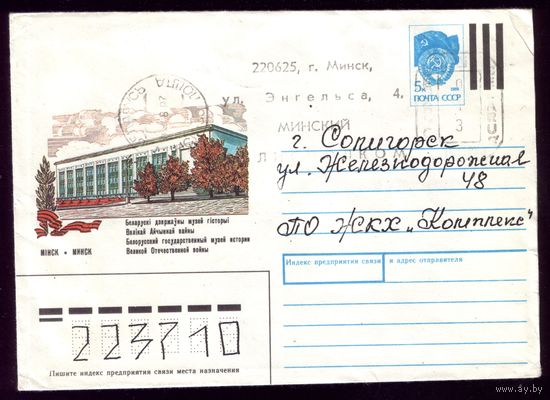 220625, г. Минск,
ул. Энгельса, 4.
МИНСКИЙ
5к
ПОЧТА СССР
г. Солигорск
ул. Железнодорожная
48
ПО ЖКХ „Комплекс“
Беларускі дзяржаўны музей гісторыі
Вялікай Айчыннай вайны
Белорусский государственный музей истории
Великой Отечественной войны
МІНСК • МИНСК
Индекс предприятия связи и адрес отправителя
223710
Пишите индекс предприятия связи места назначения
www.ay.by